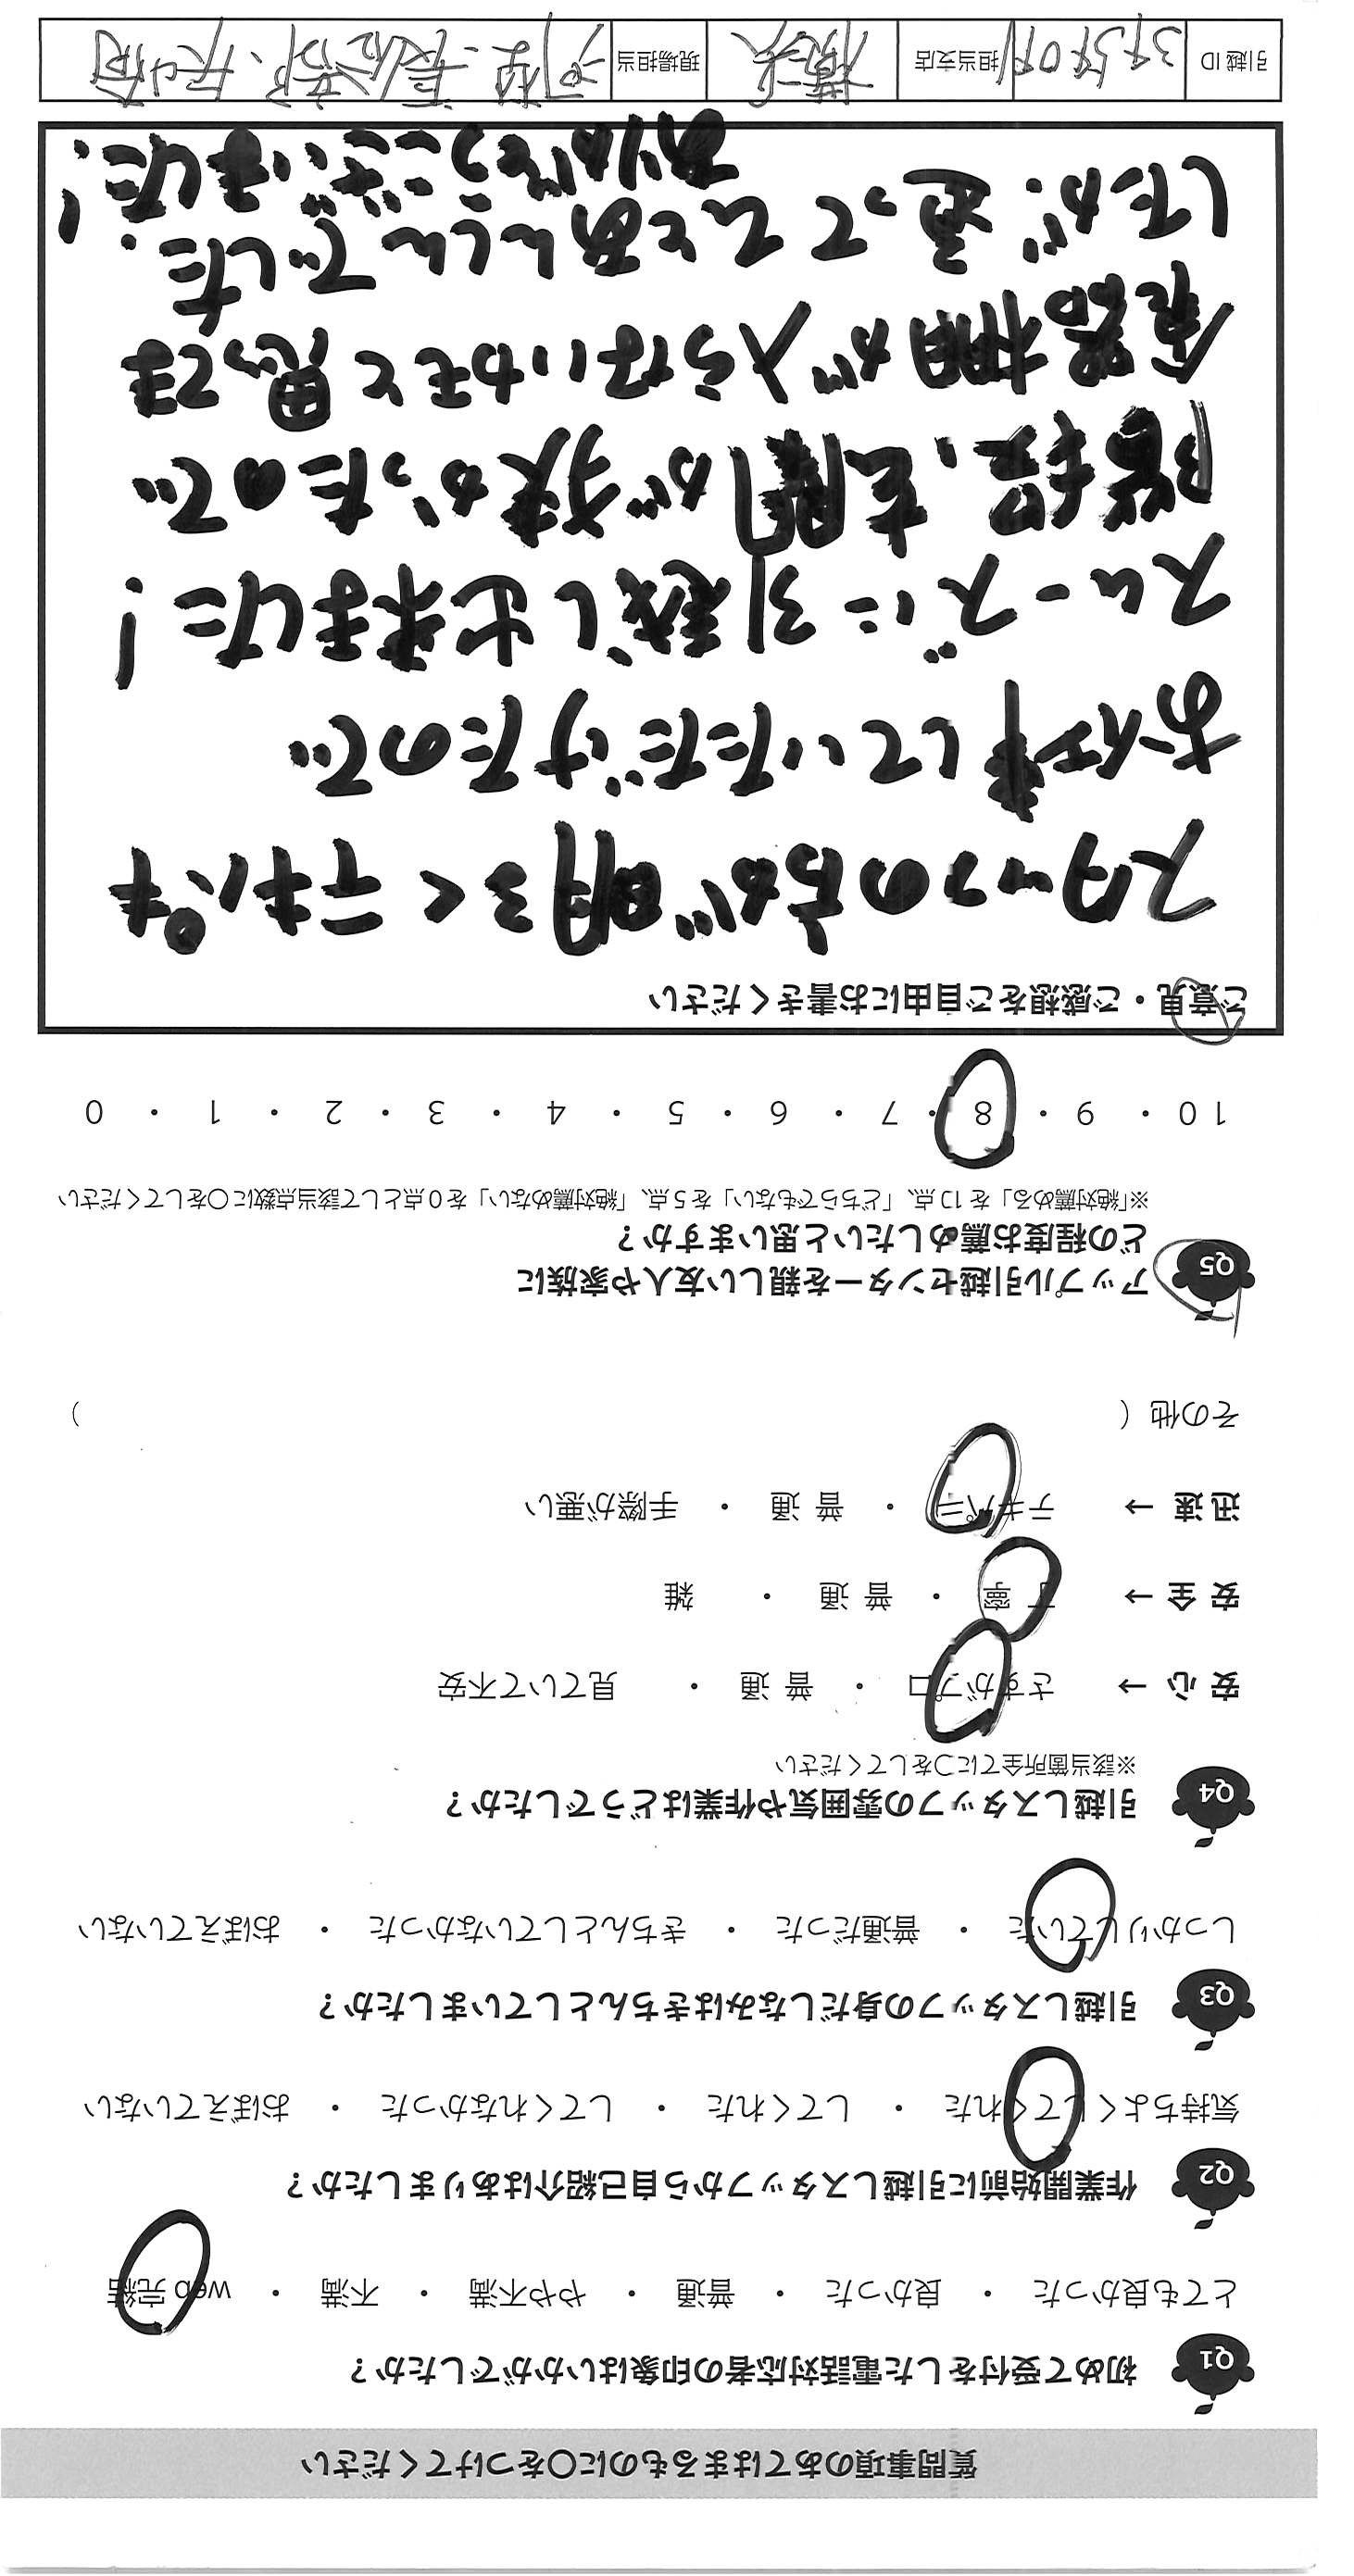 質問事項のあてはまるものに〇をつけてください
Q1 初めて受付をした電話対応者の印象はいかがでしたか？
とても良かった ・ 良かった ・ 普通 ・ やや不満 ・ 不満 ・ web 完結
Q2 作業開始前に引越しスタッフから自己紹介はありましたか？
気持ちよくしてくれた ・ してくれた ・ してくれなかった ・ おぼえていない
Q3 引越しスタッフの身だしなみはきちんとしていましたか？
しっかりしていた ・ 普通だった ・ きちんとしていなかった ・ おぼえていない
Q4 引越しスタッフの雰囲気や作業はどうでしたか？
※該当箇所全てに〇をしてください
安心 → さすがプロ ・ 普通 ・ 見ていて不安
安全 → 丁寧 ・ 普通 ・ 雑
迅速 → テキパキ ・ 普通 ・ 手際が悪い
その他（ ）
Q5 アップル引越センターを親しい友人や家族に
どの程度お薦めしたいと思いますか？
※「絶対薦める」を10点、「どちらでもない」を5点、「絶対薦めない」を0点として該当点数に〇をしてください
10 ・ 9 ・ 8 ・ 7 ・ 6 ・ 5 ・ 4 ・ 3 ・ 2 ・ 1 ・ 0
ご意見・ご感想をご自由にお書きください
スタッフの方が明るくテキパキ
お仕事していただけたので
スムーズに引越し出来ました！
階段、玄関が狭かったので
食器棚が入らないかもと思ってま
したが、通ってひとあんしんでした。
ありがとうございました！
引越ID 担当支店 横浜 現場担当